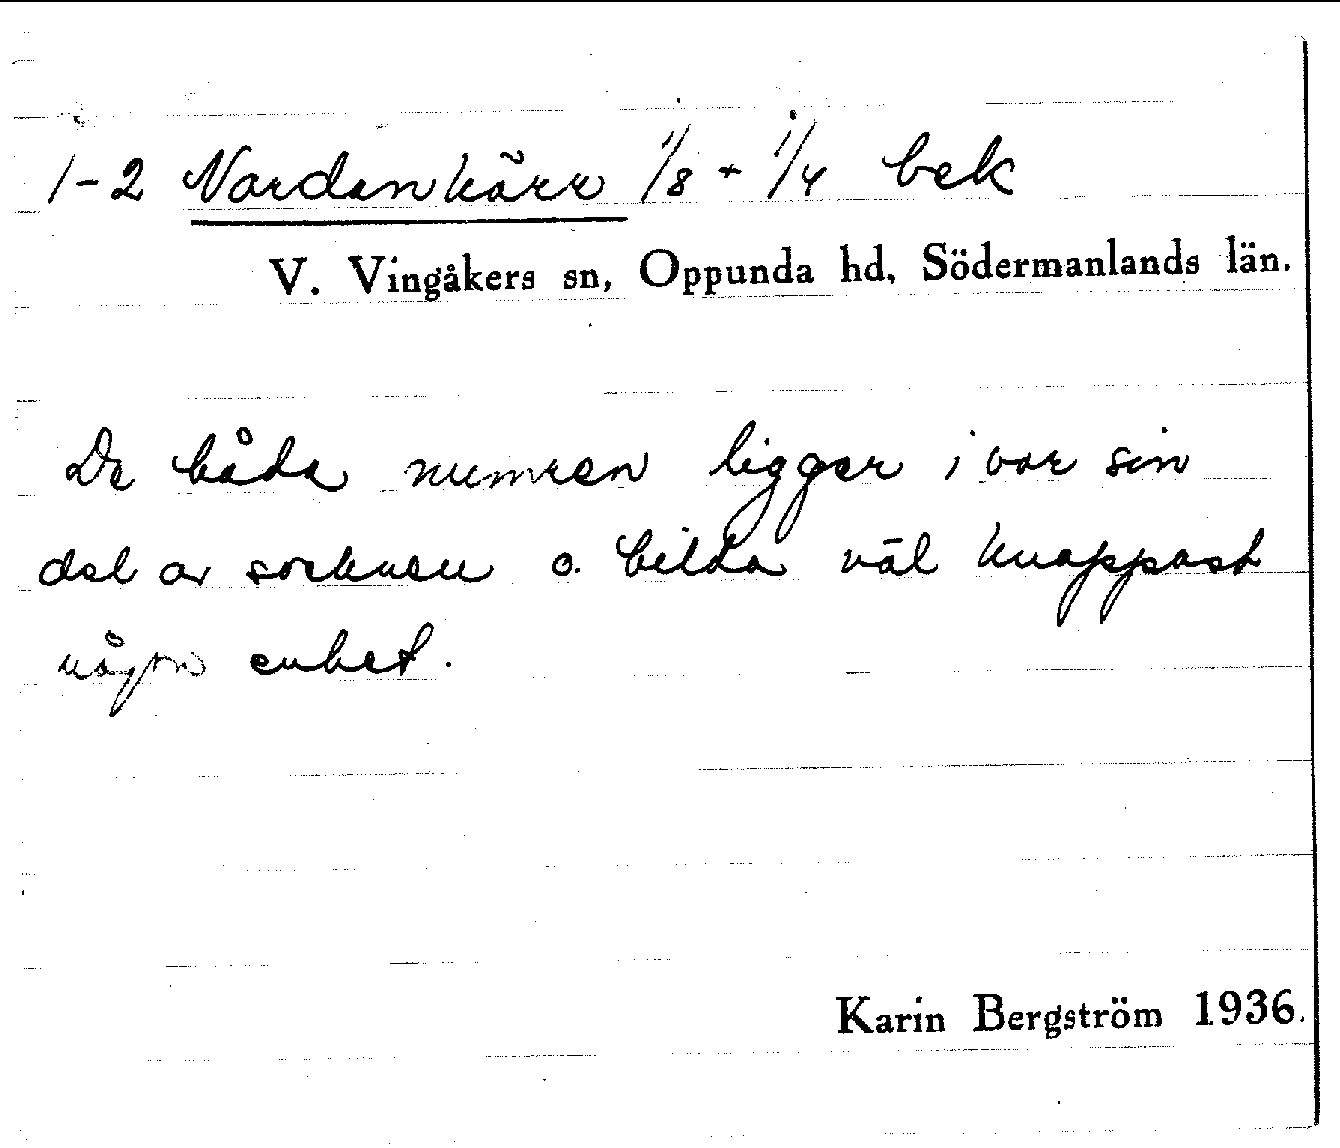 1-2 Nordankärr 1/8 + 1/4 bek
V. Vingåkers sn, Oppunda hd, Södermanlands län.
De båda numren ligger i var sin
del av socknen o. bilda väl knappast
någon enhet.
Karin Bergström 1936.